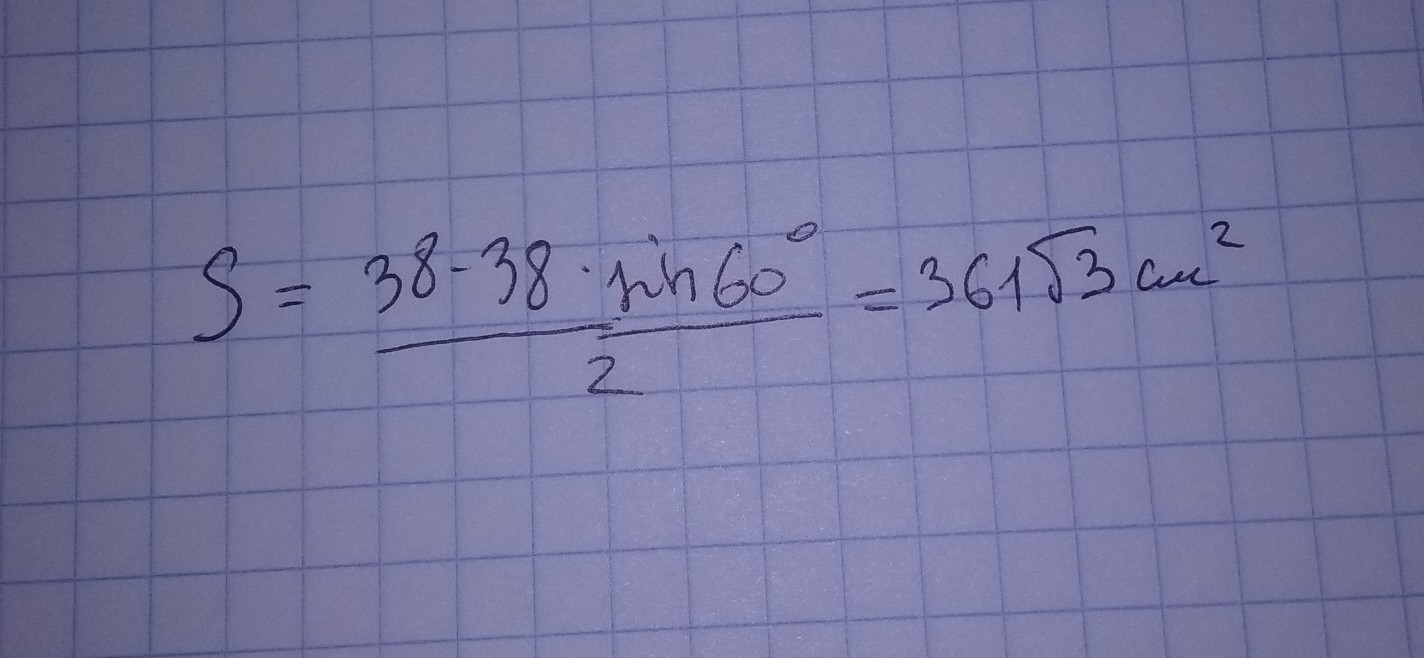 S = \frac{38 \cdot 38 \cdot \sin 60^\circ}{2} = 361\sqrt{3} см^2